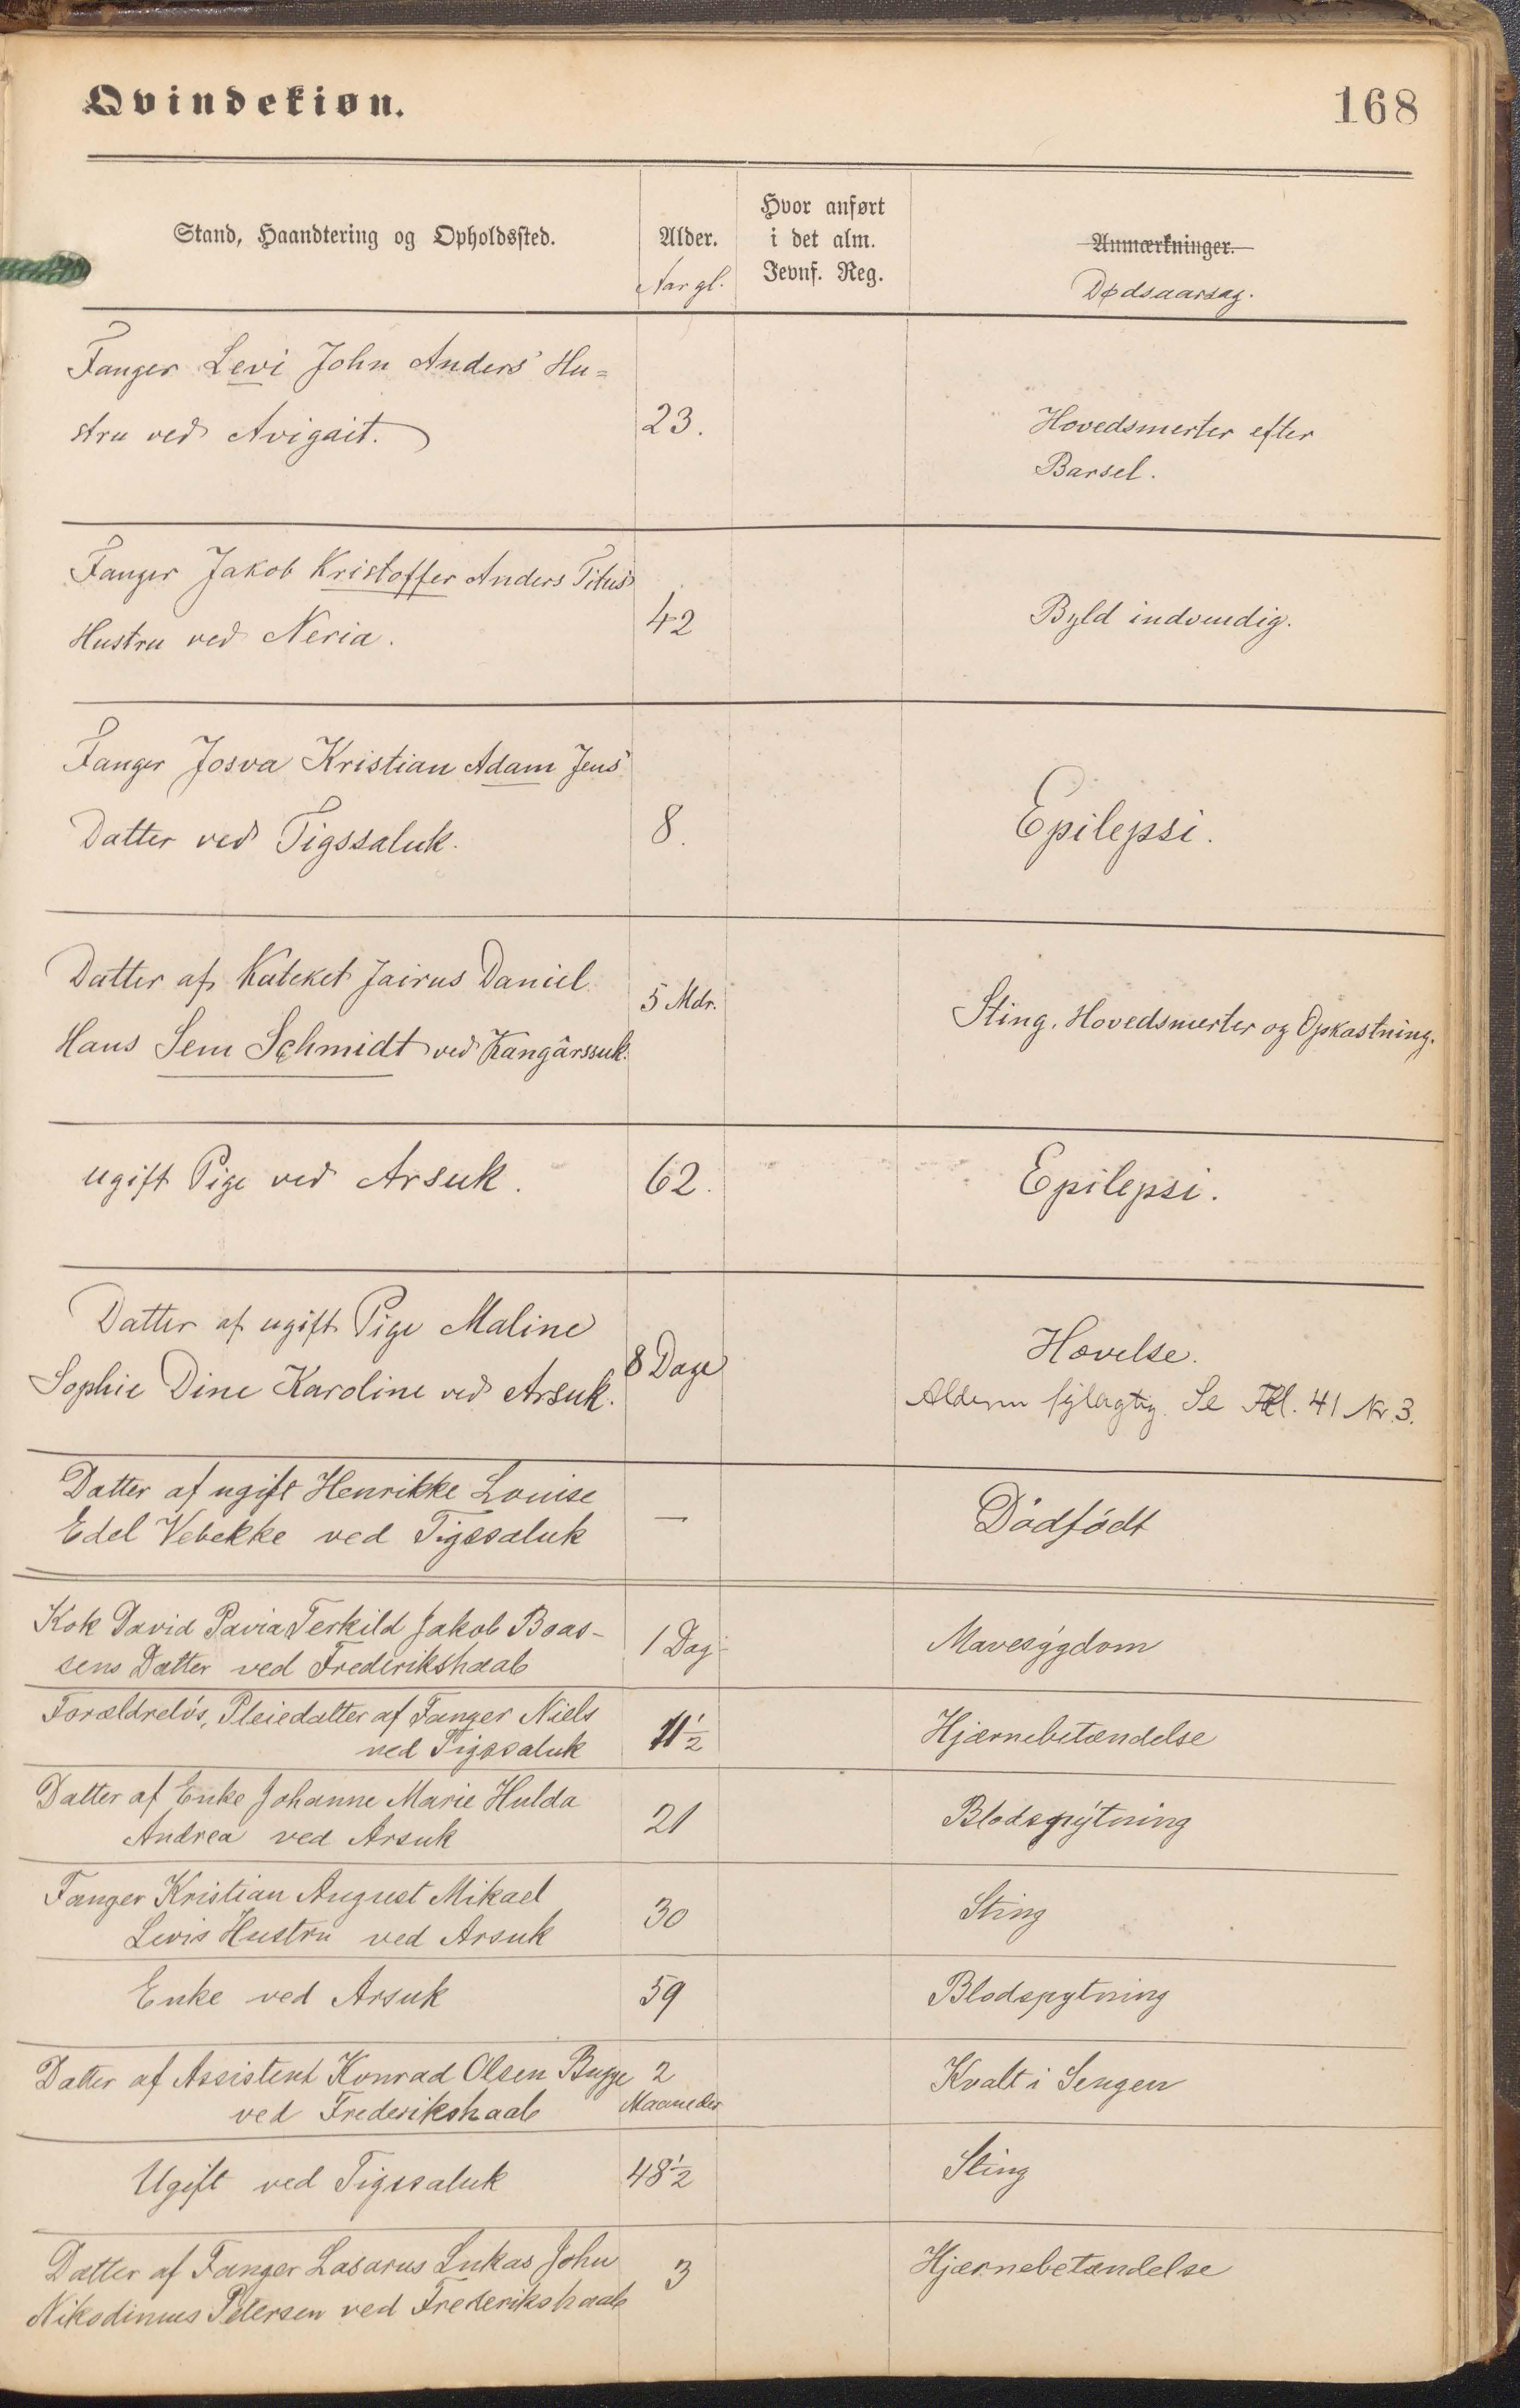 Qvindekiøn.
168
Stand, Haandtering og Opholdssted.
Alder.
Aar gl.
Hvor anført
i det alm.
Jevnf. Reg.
Anmærkninger.
Dødsaarsag.
Fanger Levi John Anders' Hu=
stru ved Avigait.
23.
Hovedsmerter efter
Barsel.
Fanger Jakob Kristoffer Anders Titus'
Hustru ved Neria.
42
Byld indvendig.
Fanger Josva Kristian Adam Jens'
Datter ved Tigssaluk.
8.
Epilepsi.
Datter af Kateket Jairus Daniel
Hans Sem Schmidt ved Kangârssuk.
5 Mdr.
Sting, Hovedsmerter og Opkastning.
ugift Pige ved Arsuk.
62.
Epilepsi.
Datter af ugift Pige Maline
Sophie Dine Karoline ved Arsuk.
8 Dage
Hævelse.
Alderen fejlagtig. Se Fol. 41 Nr. 3.
Datter af ugift Henrikke Louise
Edel Vebekke ved Tigssaluk
—
Dödfödt
Kok David Pavia Terkild Jakob Boas-
sens Datter ved Frederikshaab
1 Dag
Mavesygdom
Forældrelös, Pleiedatter af Fanger Niels
ved Tigssaluk
11½
Hjærnebetændelse
Datter af Enke Johanne Marie Hulda
Andrea ved Arsuk
21
Blodspytning
Fanger Kristian August Mikael
Levis Hustru ved Arsuk
30
Sting
Enke ved Arsuk
59
Blodspytning
Datter af Assistent Konrad Olsen Bugge
ved Frederikshaab
2
Maaneder
Kvalt i Sengen
Ugift ved Tigssaluk
48½
Sting
Datter af Fanger Lasarus Lukas John
Nikodimus Petersen ved Frederikshaab
3
Hjærnebetændelse